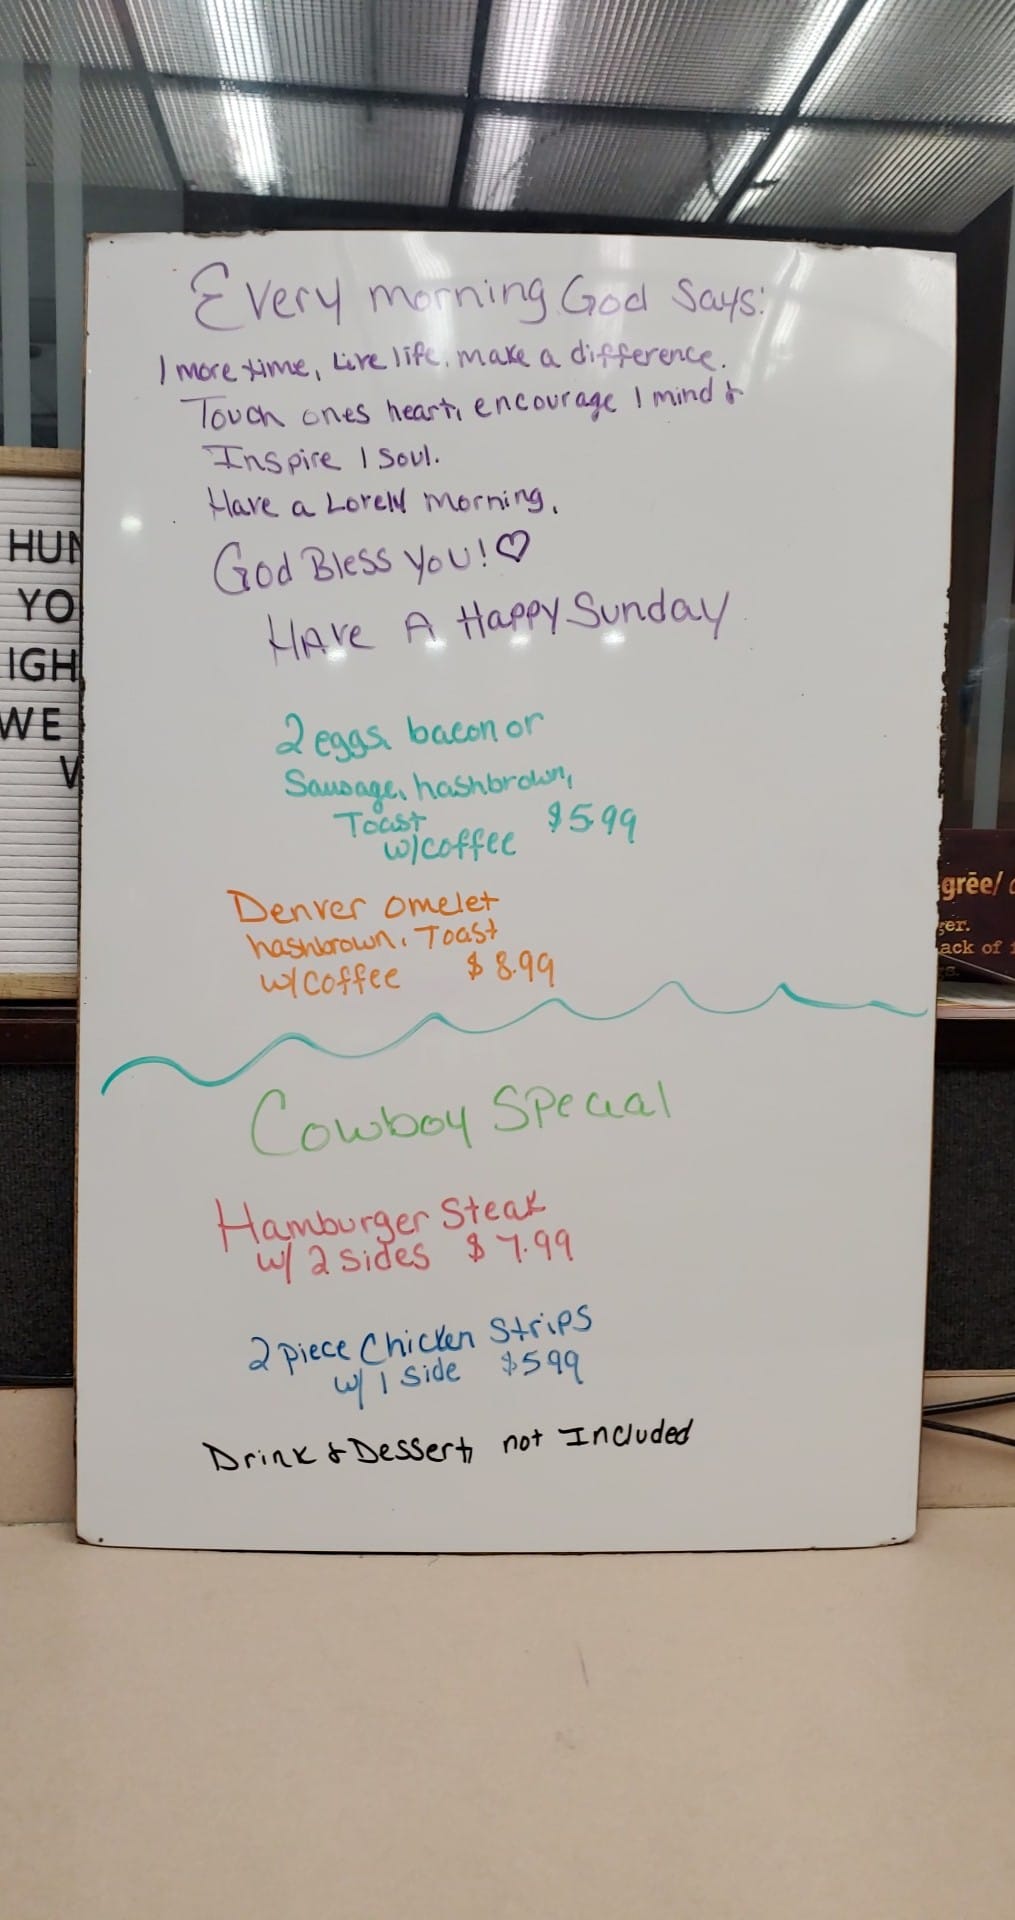 Every morning God Says:
1 more time, Live life, make a difference.
Touch ones heart, encourage 1 mind &
Inspire 1 Soul.
Have a Lovely morning.
God Bless you! ♡
HAve A Happy Sunday
2 eggs, bacon or
Sausage, hashbrown,
Toast
w/coffee $5.99
Denver omelet
hashbrown, Toast
w/coffee $8.99
Cowboy Special
Hamburger Steak
w/ 2 sides $7.99
2 piece Chicken Strips
w/ 1 Side $5.99
Drink & Dessert, not Included
HUN
YO
IGH
WE
V
grēe/
ger.
ack of
s.